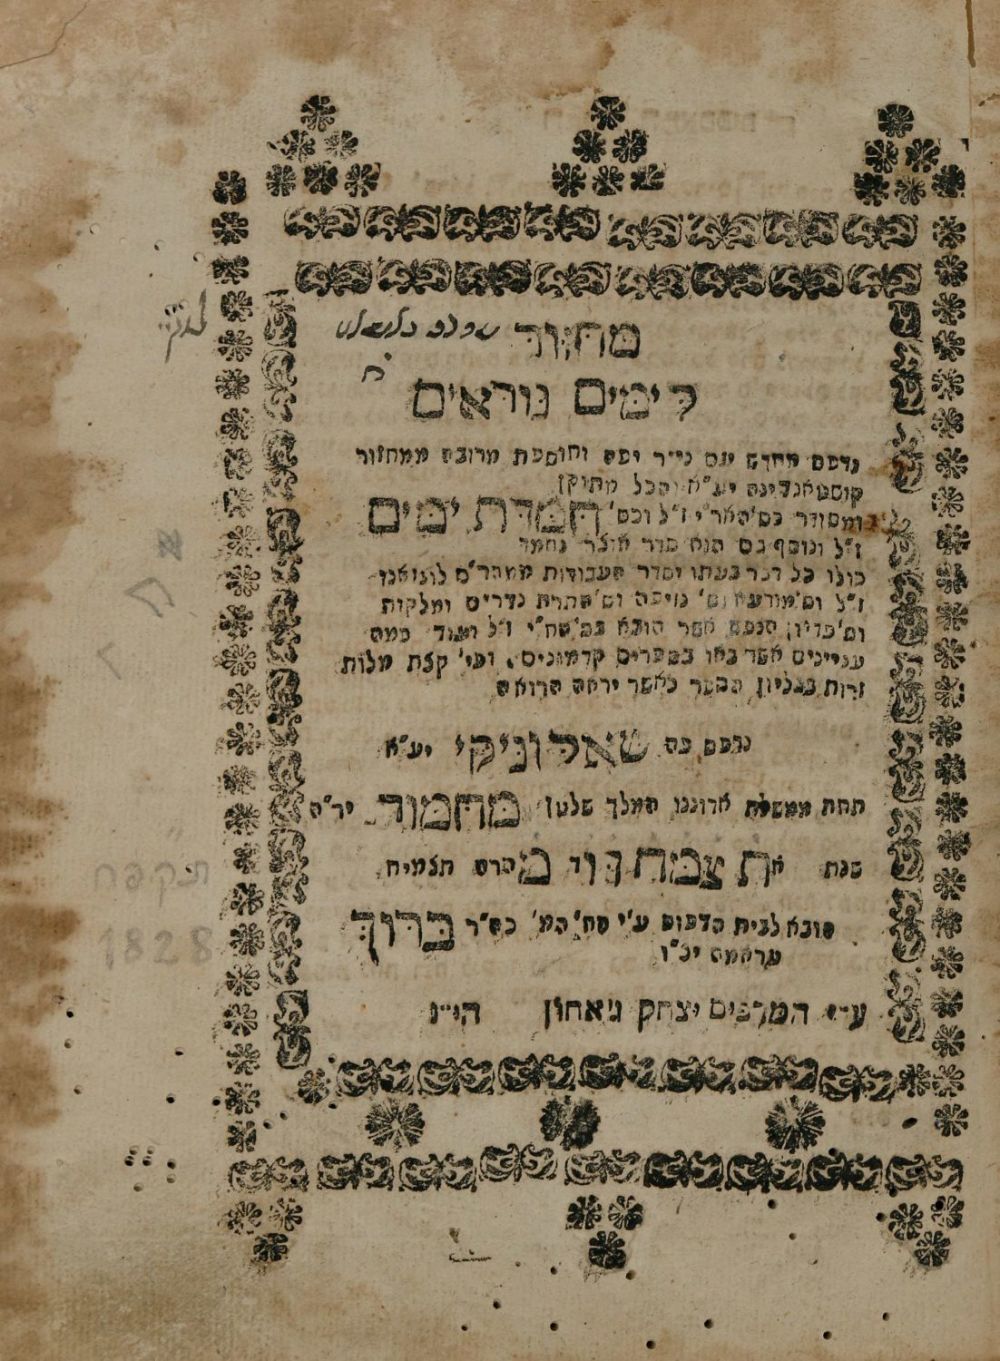 מחזור
לימים נוראים
נדפס מחדש עם נייר יפה ותוספת מרובה ממחזור
קוסטאנדינה יע"א והכל מתוקן
ומסודר כס' האר"י ז"ל וכס' חמדת ימים
ז"ל ונוסף בם הנה סדר אוצר נחמד
כולו כל דבר בעתו וסדר העבודות ממהר"ם לונזאנו
ז"ל וס' מודעה וס' גויסה וס' התרת נדרים ומלקות
וס' פדיון הנפש אשר הובא בס' חח"י ז"ל ועוד כמה
עניינים אשר באו בספרים קדמונים, ופי' קצת מלות
זרות בגליון הספר כאשר יראה הרואה
נדפס פה שאלוניקי יע"א
תחת ממשלת אדוננו המלך שלטן מחמוד יר"ה
שנת את צמח דוד מהרה תצמיח
הובא לבית הדפוס ע"י הח' המ' כה"ר ברוך
עראמה יצ"ו
ע"י המדפיס יצחק ג'אחון הי"ו
תקפח
1828